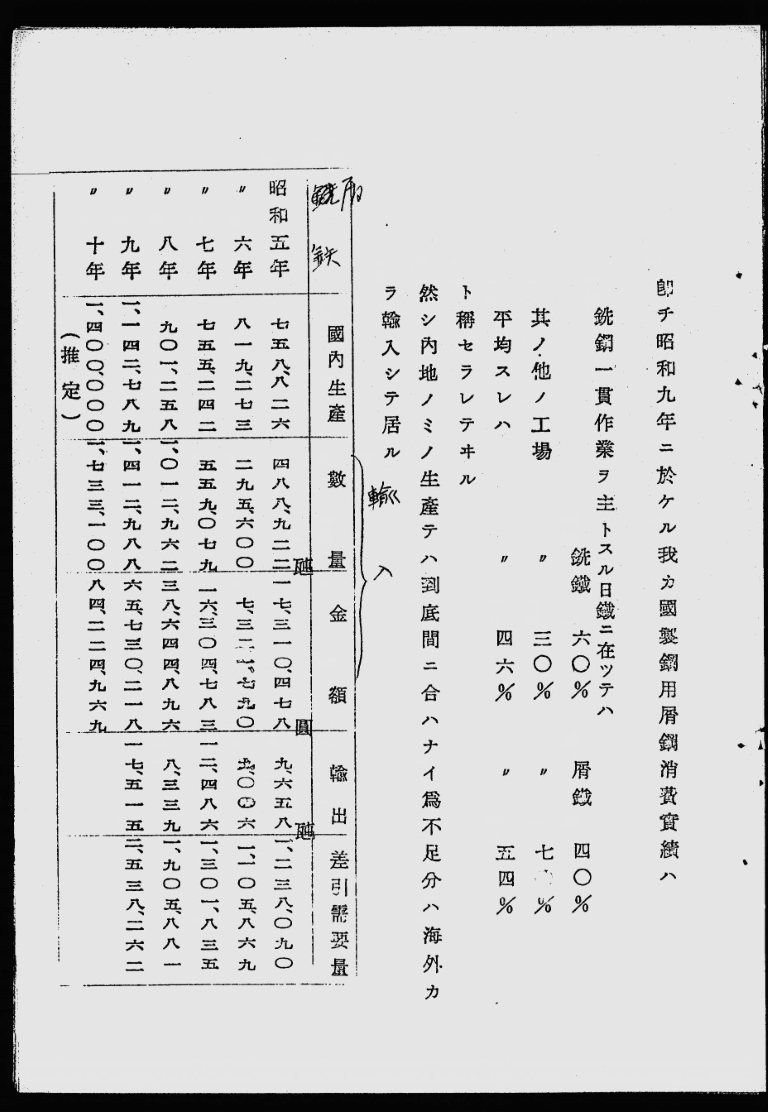 卽チ昭和九年ニ於ケル我カ國製鋼用屑鋼消費實績ハ
銑鋼一貫作業ヲ主トスル日鐵ニ在ツテハ
銑鐵 六〇% 屑鐵 四〇%
其ノ他ノ工場 〃 三〇% 〃 七〇%
平均スレハ 〃 四六% 〃 五四%
ト稱セラレテヰル
然シ內地ノミノ生產テハ到底間ニ合ハナイ爲不足分ハ海外カ
ラ輸入シテ居ル
屑 鉄 輸入
國內生產 數量 金額 輸出 差引需要量
瓲 圓 瓲
昭和五年 七五八、八二六 四八八、九二二 一七、三一〇、四七八 九、六五八 一、二三八、〇九〇
〃 六年 八一九、二七三 二九五、六〇〇 七、三二一、七九〇 九、〇〇六 一、一〇五、八六九
〃 七年 七五五、二四二 五五九、〇七九 一六、三〇四、七八三 一二、四八六 一、三〇一、八三五
〃 八年 九〇一、二五八 一、〇一二、九六二 三八、六四四、八九六 八、三三九 一、九〇五、八八一
〃 九年 一、一四二、七八九 一、四一二、九八八 六五、七三〇、二一八 一七、五一五 二、五三八、二六二
〃 十年 一、四〇〇、〇〇〇 一、七三三、一〇〇 八四、二二四、九六九
(推定)